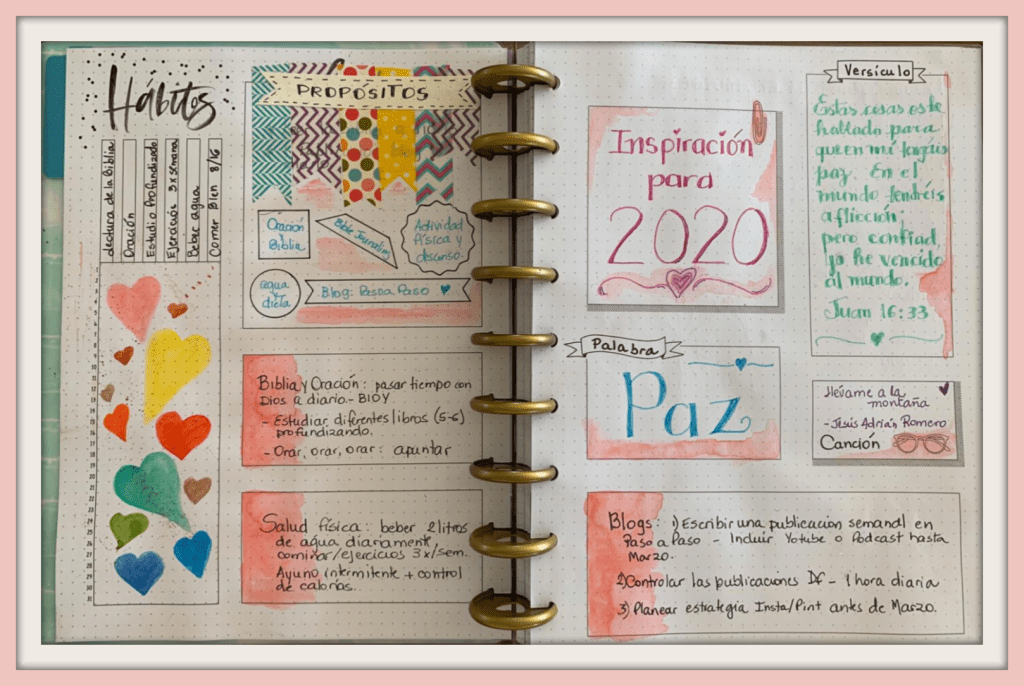 Hábitos
Lectura de la Biblia
Oración
Estudio Profundizado
Ejercicios 3 x semana
Beber agua
Comer Bien 8/16
PROPÓSITOS
Oración
y
Biblia
Bible Journaling
Actividad
física y
descanso.
agua
y
dieta
Blog: Paso a Paso
Biblia y Oración: pasar tiempo con
Dios a diario - BIOY
- Estudiar diferentes libros (5-6)
profundizando.
- Orar, orar, orar: apuntar
Salud física: beber 2 litros
de agua diariamente,
caminar/ejercicios 3x/sem.
Ayuno intermitente + control
de calorías.
Inspiración
para
2020
Versículo
Estas cosas os he
hablado para
que en mí tengáis
paz. En el
mundo tendréis
aflicción;
pero confiad,
yo he vencido
al mundo.
Juan 16:33
Palabra
Paz
Llévame a la
montaña
- Jesús Adrián Romero
Canción
Blogs: 1) Escribir una publicación semanal en
Paso a Paso - Incluir Yotube o Podcast hasta
Marzo.
2) Controlar las publicaciones DF - 1 hora diaria
3) Planear estrategia Insta/Pint antes de Marzo.